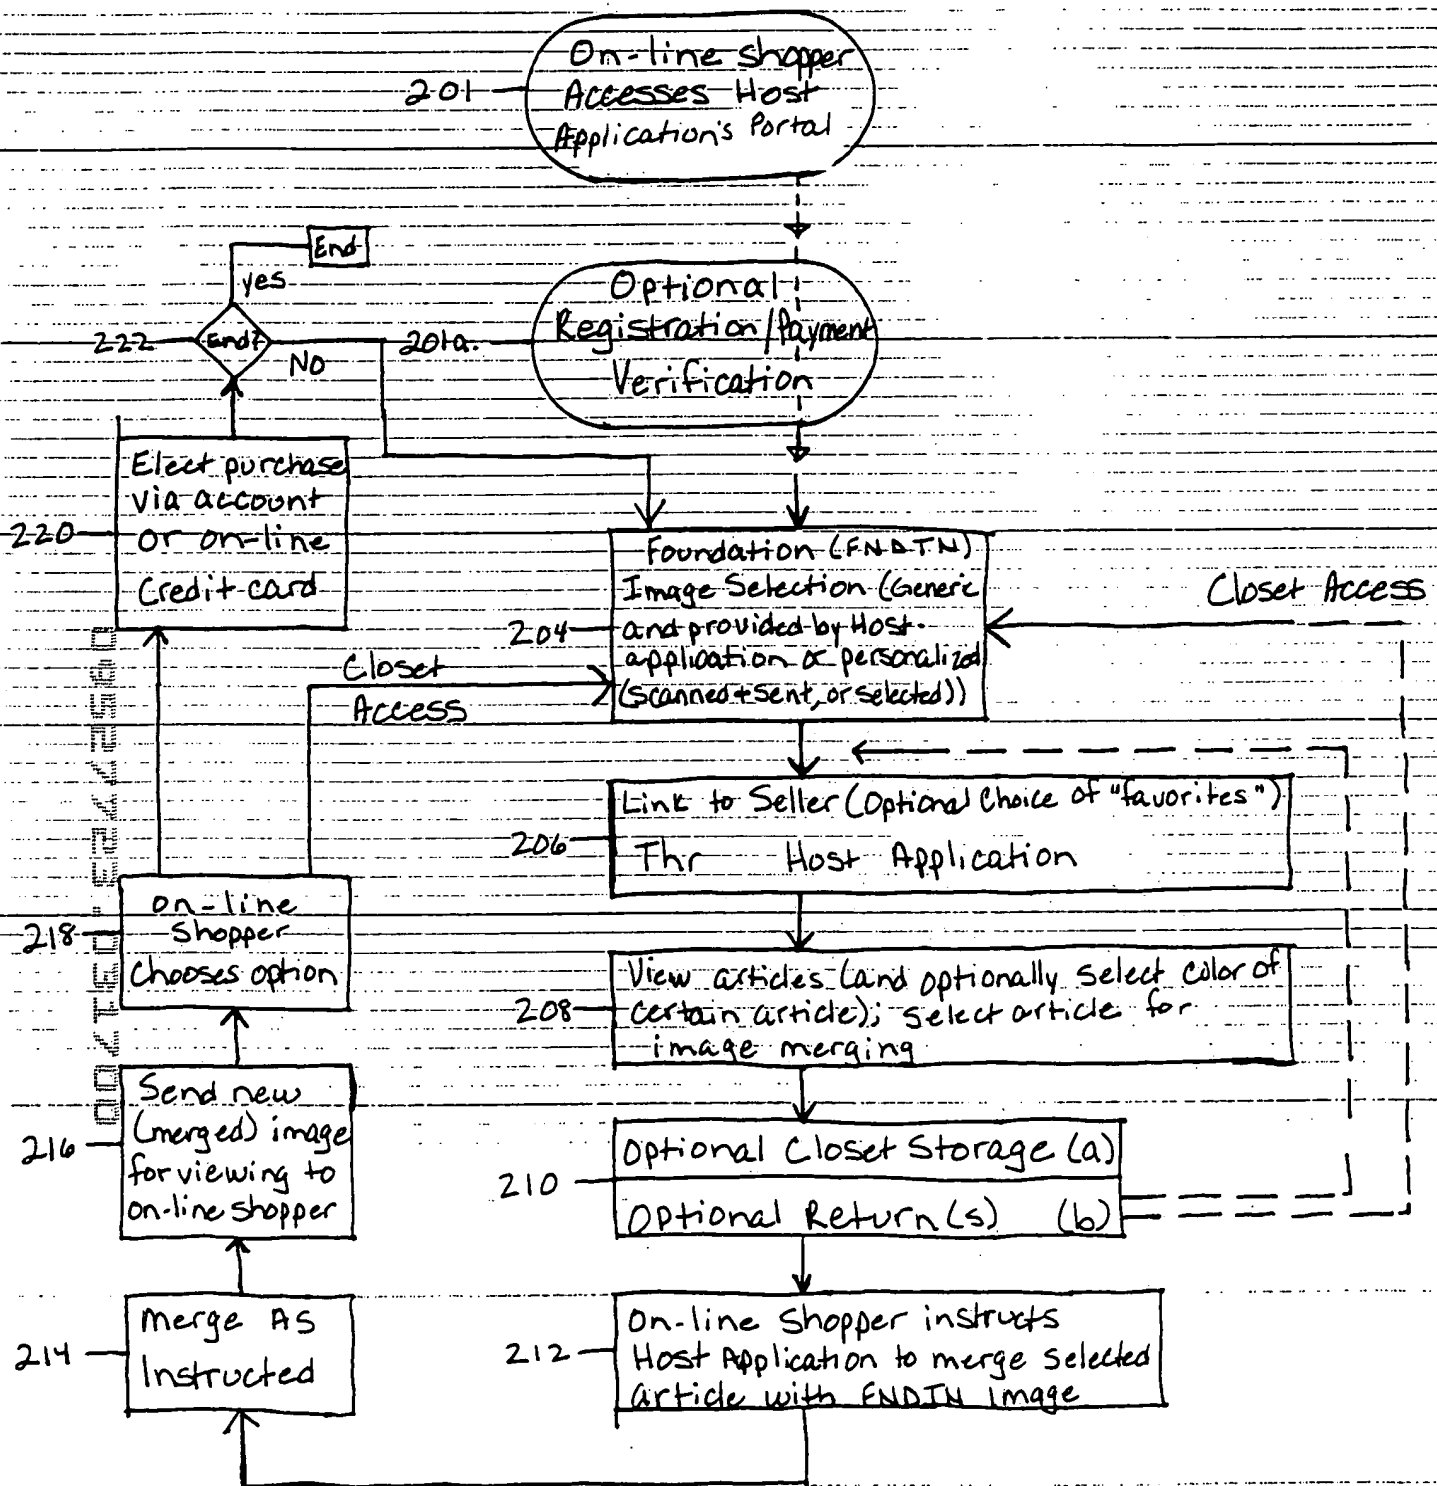 On-line shopper
201
Accesses Host
Application's Portal
End
yes
Optional
Registration/Payment
Verification
222
End?
201a.
No
Elect purchase
via account
or on-line
Credit card
220
Foundation (FNDTN)
Image Selection (Generic
and provided by Host
application or personalized
(scanned + sent, or selected))
204
Closet Access
Closet
Access
Link to Seller (Optional Choice of "favorites")
Thr Host Application
206
on-line
Shopper
Chooses option
218
View articles (and optionally select color of
certain article); select article for
image merging
208
Send new
(merged) image
for viewing to
on-line shopper
216
Optional Closet Storage (a)
210
Optional Return(s) (b)
Merge As
Instructed
214
On-line Shopper instructs
Host Application to merge selected
article with FNDTN image
212